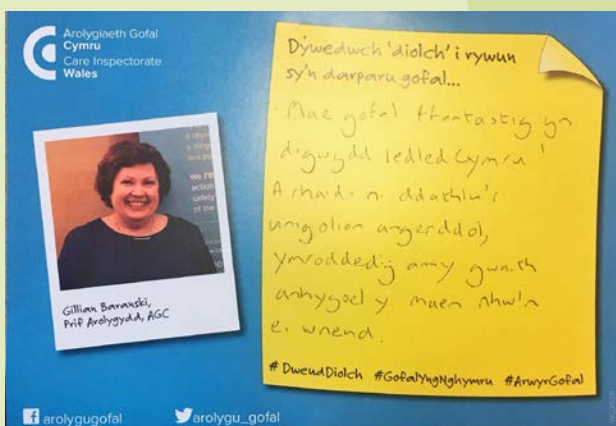 Arolygiaeth Gofal
Cymru
Care Inspectorate
Wales
We re
action
safety
of the
Gillian Baranski,
Prif Arolygydd, AGC
Dywedwch 'diolch' i rywun
sy'n darparu gofal...
Mae gofal ffantastig yn
digwydd ledled Cymru!
A rhaid i ni ddathlu'r
unigolion angerddol,
ymroddedig am y gwaith
anhygoel y maen nhw'n
ei wneud.
#DweudDiolch #GofalYngNghymru #ArwyrGofal
arolygugofal
arolygu_gofal